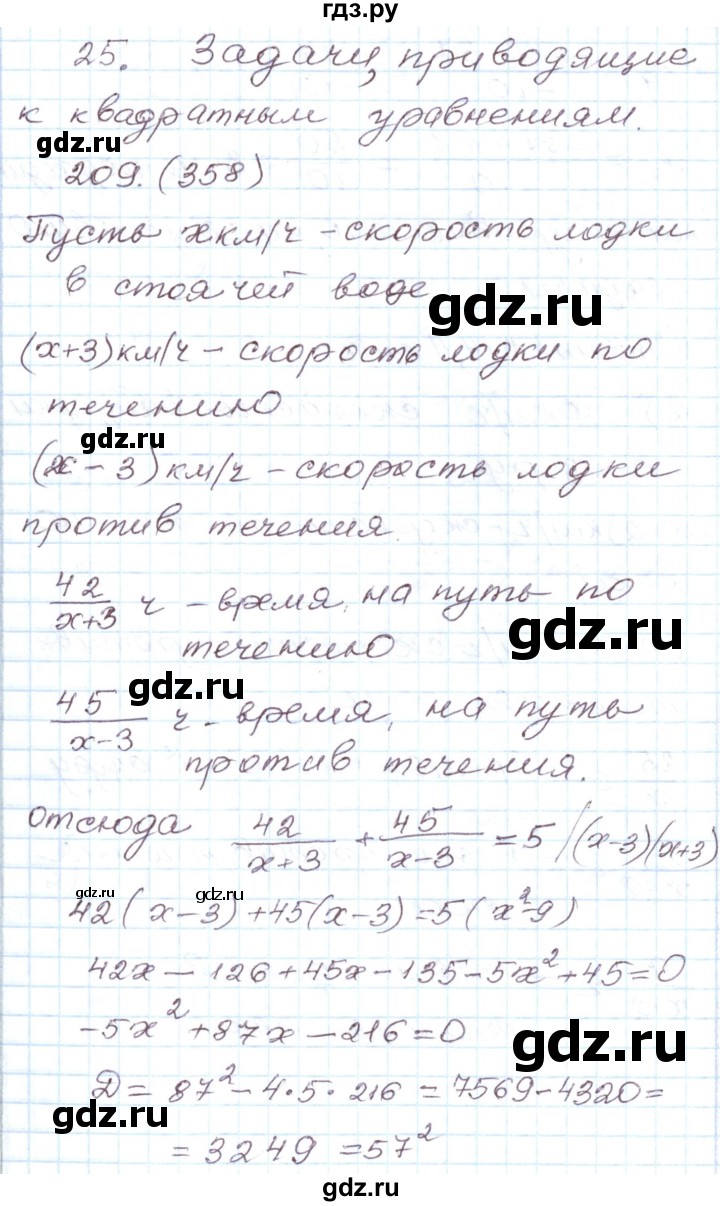 гдз.ру
25. Задачи, приводящие
к квадратным уравнениям.
gdz.ru
209. (358)
Пусть x км/ч - скорость лодки
в стоячей воде
gdz.ru
(x+3) км/ч - скорость лодки по
течению
gdz.ru
(x-3) км/ч - скорость лодки
против течения.
42/(x+3) ч - время, на путь по
gdz.ru
течению
gdz.ru
45/(x-3) ч - время, на путь
против течения.
отсюда 42/(x+3) + 45/(x-3) = 5 /(x-3)(x+3)
gdz.ru gdz.ru
42(x-3)+45(x-3)=5(x²-9)
42x-126+45x-135-5x²+45=0
-5x²+87x-216=0
gdz.ru
D=87²-4·5·216=7569-4320=
gdz.ru
=3249=57²
gdz.ru